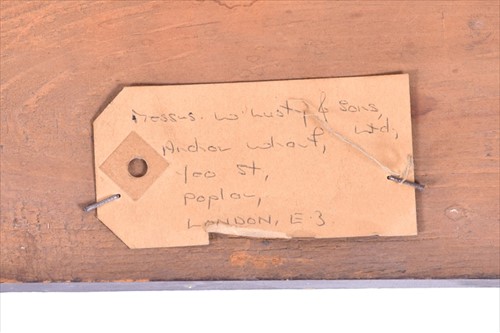 Messrs. W. Lusty & Sons,
Ltd,
Anchor Wharf,
Yeo St,
Poplar,
LONDON, E.3